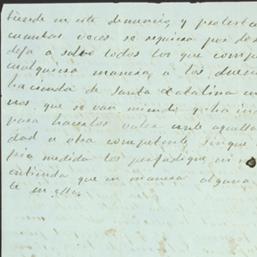 tiende en este denuncio, y protesta
cuantas veces se requiera por de
deja a salvo todos los que comp
cualquiera manera, a los dueñ
hacienda de Santa Catalina
nos, que se van
para hacerlos valer ante aquella
dad u otra competente, sin que
pia medida los perjudique, ni
entienda que en manera alguna
te en ellos